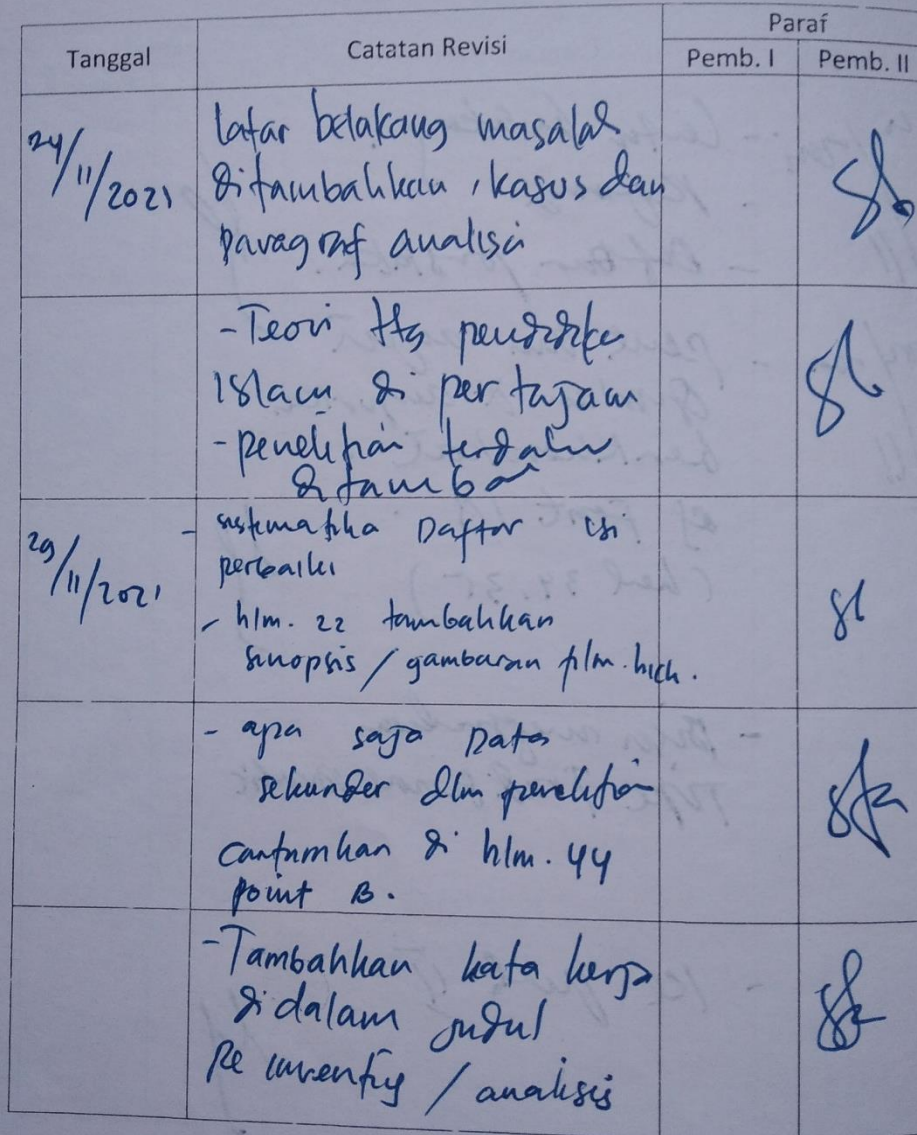 Paraf
Tanggal Catatan Revisi Pemb. I Pemb. II
24/11/2021
latar belakang masalah
ditambahkan, kasus dan
paragraf analisis
-Teori ttg pendidikan
Islam di pertajam
-penelitian terdahulu
ditambah
29/11/2021
- sistematika Daftar isi
perbaiki
- hlm. 22 tambahkan
sinopsis / gambaran film.
- apa saja Data
sekunder dlm penelitian
cantumkan di hlm. 44
point B.
-Tambahkan kata kerja
didalam judul
/ analisis